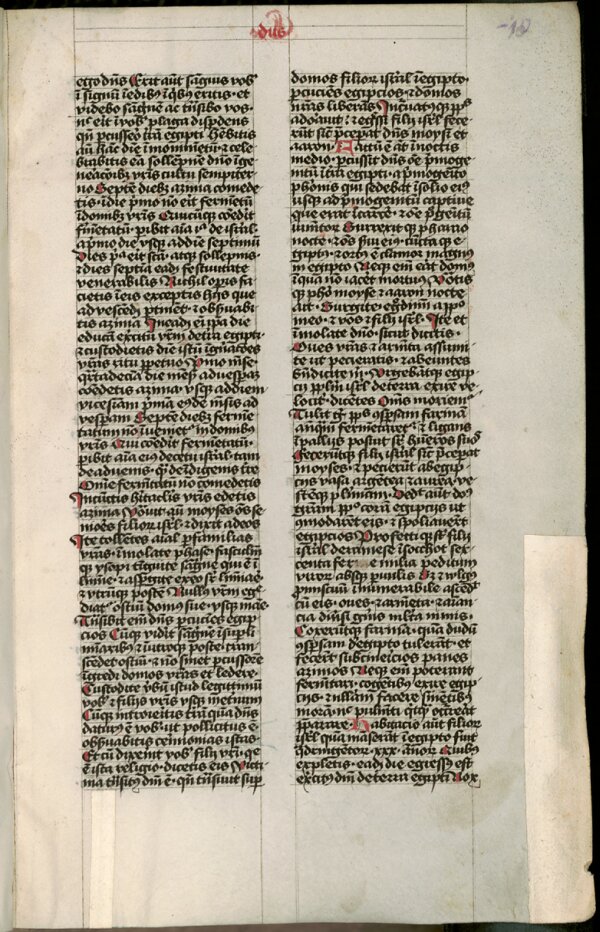 dus
ego dns Erit aut sanguis vob
i signu i edib i qbs eritis · et
videbo sagne ac tnsibo vos ·
nc eit i vob plaga dispdens
qn pcusseo tra egipti Hebitis
au hac die i monimetu · z cele
brabitis ea sollepne dno i ge
neacoib vris cultu sempiter
no Septe dieb azima comede
tis · i die pmo no eit fermetu
i domib vris Quicuq coedit
fmetatu · pibit aia ia de isral ·
a pmo die usq ad die septimu
Dies pa eit sta · atq sollepnis ·
z dies septia eade festiuitate
venerabilis Nichil opis fa
cietis i eis exceptis hijs que
ad vescedu ptinet · z obsuabi
tis azima In eade eni ipa die
educa excitu vrm de tra egipti ·
z custodietis die istu i gnacoes
vras ritu ppetuo Pmo mse ·
qrtadecia die mens ad uespam
coedetis azima usq ad diem
vicesiam pma eiusde mesis ad
vespam Septe dieb ferme
tatum no i uenietr i domibus
vris Qui coedit fermetatu ·
pibit aia eius de cetu isral · tam
de aduenis · q de i digenis tre
Omne fermetatu no comedetis
In cunctis hitaclis vris edetis
azima Vocauit au moyses oes se
niores filior isrl · z dixit ad eos
Ite tolletes aial p familias
vras · i molate phase · fasciculum
qz ysopi tiguite sagne qui e i
limie · z aspgite ex eo sr limiae ·
z utruqz poste Nullus vrm egre
diatr ostiu domus sue · usqz mae ·
Tnsibit em dns pcuciens egip
cios Cuqz vidit sagne i supli
minari · z i utroqz poste · tran
scedet ostiu · z no sinet pcussore
i gredi domos vras et ledere ·
Custodite vbu istud legitimu
vob z filijs vris usqz i etnum
Cuqz introieritis tra qua dns
daturus e vob · ut pollicitus e ·
obsuabitis cerimonias istas ·
Et cu dixerint vob filij vri · qe
e ista religio · dicetis eis Victi
ma tnsitus dni e · qn tnsiuit supr
domos filior isral i egipto ·
pcuciens egipcios · z domos
nras liberas Incuatqz pps
adorauit · z egssi filij isrl fece
rut sic pcepat dns moysi et
aaron Factu e at i noctis
medio · pcussit dns oe pmoge
nitu i tra egipti · a pmogenito
pharonis qui sedebat i solio eius
usqz ad pmogenitu captiue
que erat i carce · z oe pgenitu
iumetor Surrexitqz pharao
nocte · z oes sui eius · cuctaqz e
giptus · z ortus e clamor magnus
in egipto Neqz em eat domus
i qua no iacet mortuus Vocatis
qz pharao moyse z aaron nocte
ait · Surgite · egdimi a ppo
meo · z vos z filij isrl · Ite et
i molate dno sicut dicitis ·
Oues vras z armeta assumi
te ut pecieratis · z abeuntes
bndicite mi · Vrgebatqz egip
cij pplm isrl de terra exire ve
locit · dicetes Oms moriemr
Tulit igr pps cospsam farina
anqm fermetaretr · z ligans
i pallijs posuit sr hueros suos
Feceruntqz filij isral sic pcepat
moyses · z pecierut ab egip
cijs vasa argetea z aurea · ve
steqz plimam · Dedit aut dns
gram ppo cora egipcijs ut
comodaret eis · z spoliauerut
egipcios Profectiqz st filij
isral de ramesse i sochot sex
centa fere milia peditum
viror absqz puulis
pmiscuu i numerabile ascedit
cu eis · oues · z armeta · z aian
cia diuisi genis mlta nimis ·
Coxeruntqz farina · qua dudu
cospsam de egipto tulerat · et
fecert subcinericios panes
azimos Neqz em poterant
fermetari · cogetibus exire egip
cijs · z nullam facere sinetibus
moram · nc pulmeti qicqz occreat
pparare Habitacio aut filior
isrl qua maserat i egipto fuit
qdrigetor · xxx · anor Quibus
expletis · eade die egressus est
excitus dni de terra egipti Nox